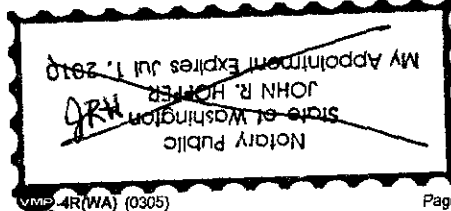 Notary Public
State of Washington
JOHN R. HOFFER
My Appointment Expires Jul 1, 2010
JRH
VMP-4R(WA) (0305)
Page